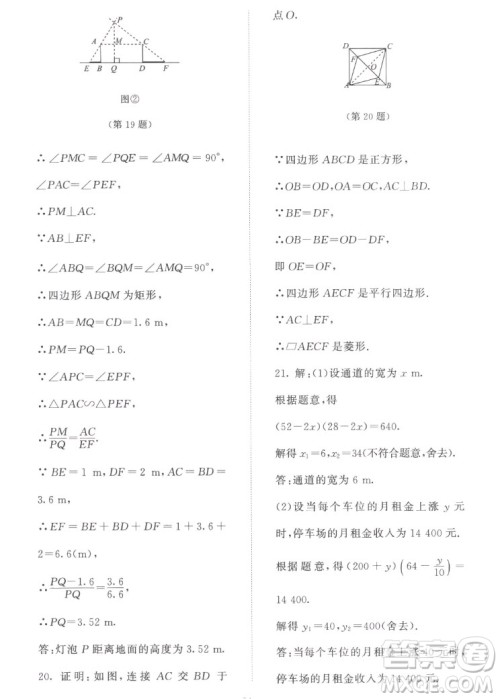 P
A
M
C
E
B
Q
D
F
图②
(第19题)
∴∠PMC=∠PQE=∠AMQ=90°,
∠PAC=∠PEF,
∴PM⊥AC.
∵AB⊥EF,
∴∠ABQ=∠BQM=∠AMQ=90°,
∴四边形 ABQM 为矩形,
∴AB=MQ=CD=1.6 m,
∴PM=PQ-1.6.
∵∠APC=∠EPF,
∴△PAC∽△PEF,
∴PM/PQ=AC/EF.
∵BE=1 m, DF=2 m, AC=BD=
3.6 m,
∴EF=BE+BD+DF=1+3.6+
2=6.6(m),
∴(PQ-1.6)/PQ=3.6/6.6,
∴PQ=3.52 m.
答:灯泡 P 距离地面的高度为 3.52 m.
20. 证明:如图,连接 AC 交 BD 于
点O.
D
C
F
O
A
E
B
(第20题)
∵四边形 ABCD 是正方形,
∴OB=OD, OA=OC.
∵BE=DF,
∴OB-BE=OD-DF,
即 OE=OF,
∴四边形 AECF 是平行四边形.
∵AC⊥EF,
∴□AECF 是菱形.
21. 解:(1)设通道的宽为 x m.
根据题意,得
(52-2x)(28-2x)=640.
解得 x₁=6, x₂=34(不符合题意,舍去).
答:通道的宽为 6 m.
(2)设当每个车位的月租金上涨 y 元
时,停车场的月租金收入为 14 400 元.
根据题意,得 (200+y)(64-y/10)=
14 400.
解得 y₁=40, y₂=400(舍去).
答:当每个车位的月租金上涨 40 元
时,停车场的月租金收入为 14 400 元.